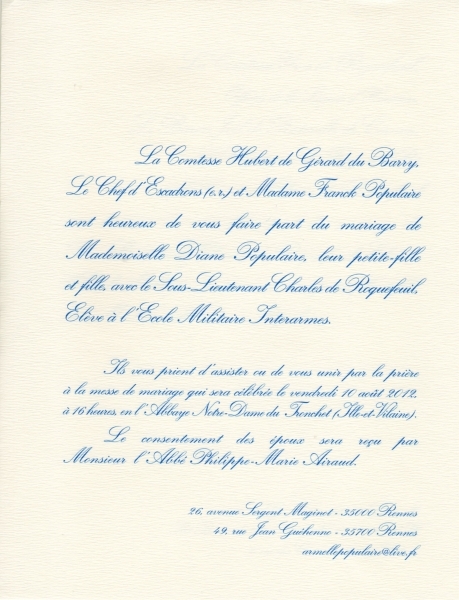 La Comtesse Hubert de Gérard du Barry,
Le Chef d'Escadrons (e.r.) et Madame Franck Populaire
sont heureux de vous faire part du mariage de
Mademoiselle Diane Populaire, leur petite-fille
et fille, avec le Sous-Lieutenant Charles de Roquefeuil,
Elève à l'Ecole Militaire Interarmes.
Ils vous prient d'assister ou de vous unir par la prière
à la messe de mariage qui sera célébrée le vendredi 10 août 2012,
à 16 heures, en l'Abbaye Notre-Dame du Tronchet (Ille-et-Vilaine).
Le consentement des époux sera reçu par
Monsieur l'Abbé Philippe-Marie Airaud.
26, avenue Sergent Maginot - 35000 Rennes
49, rue Jean Guéhenno - 35700 Rennes
armellepopulaire@live.fr